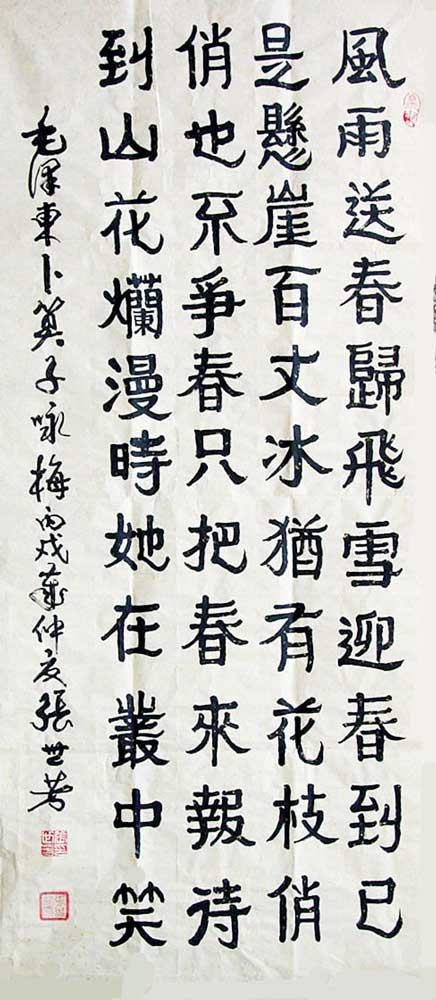 風雨送春歸飛雪迎春到已
是懸崖百丈冰猶有花枝俏
俏也不爭春只把春來報待
到山花爛漫時她在叢中笑
毛澤東卜算子咏梅丙戌歲仲夏張世芳